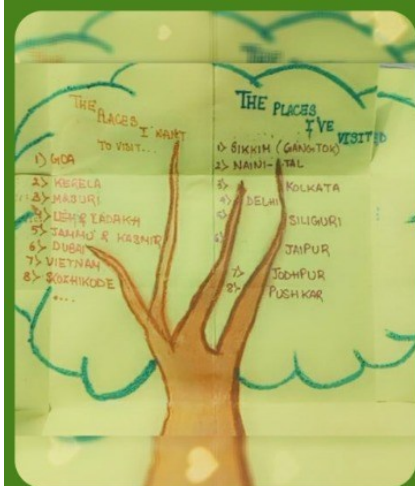 THE
PLACES
I WANT
TO VISIT...
1) GOA
2) KERELA
3) MASURI
4) LEH & LADAKH
5) JAMMU & KASMIR
6) DUBAI
7) VIETNAM
8) KOZHIKODE
....
THE PLACES
I'VE
VISITED
1) SIKKIM (GANGTOK)
2) NAINI-TAL
3) KOLKATA
4) DELHI
5) SILIGURI
6) JAIPUR
7) JODHPUR
8) PUSHKAR